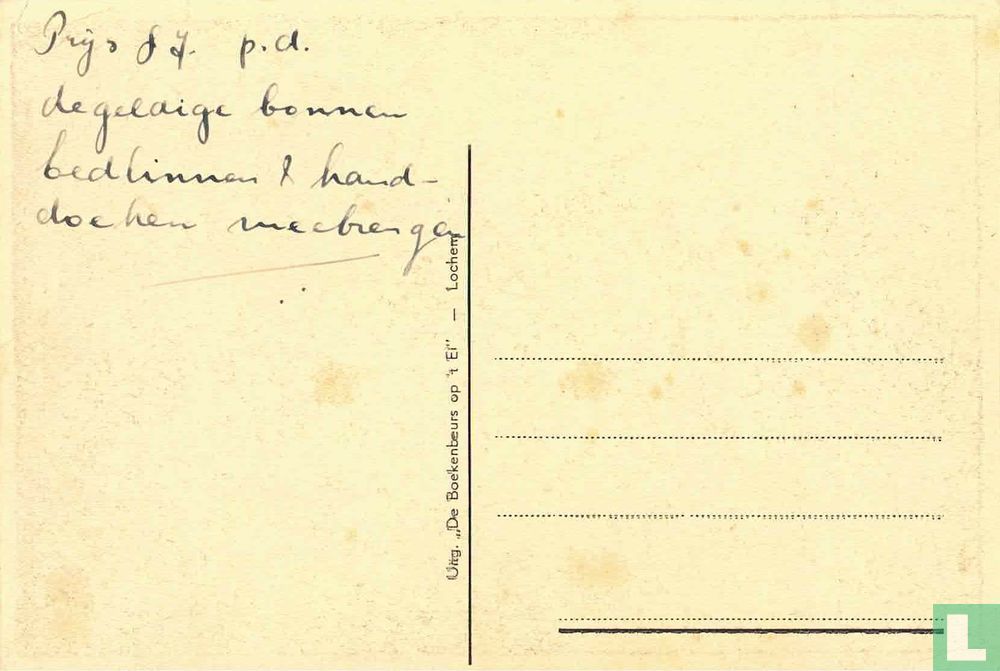 Prijs f 7. p.d.
de geldige bonnen
bedlinnen & hand-
doeken meebrengen
Uitg. „De Boekenbeurs op 't Ei" — Lochem
L